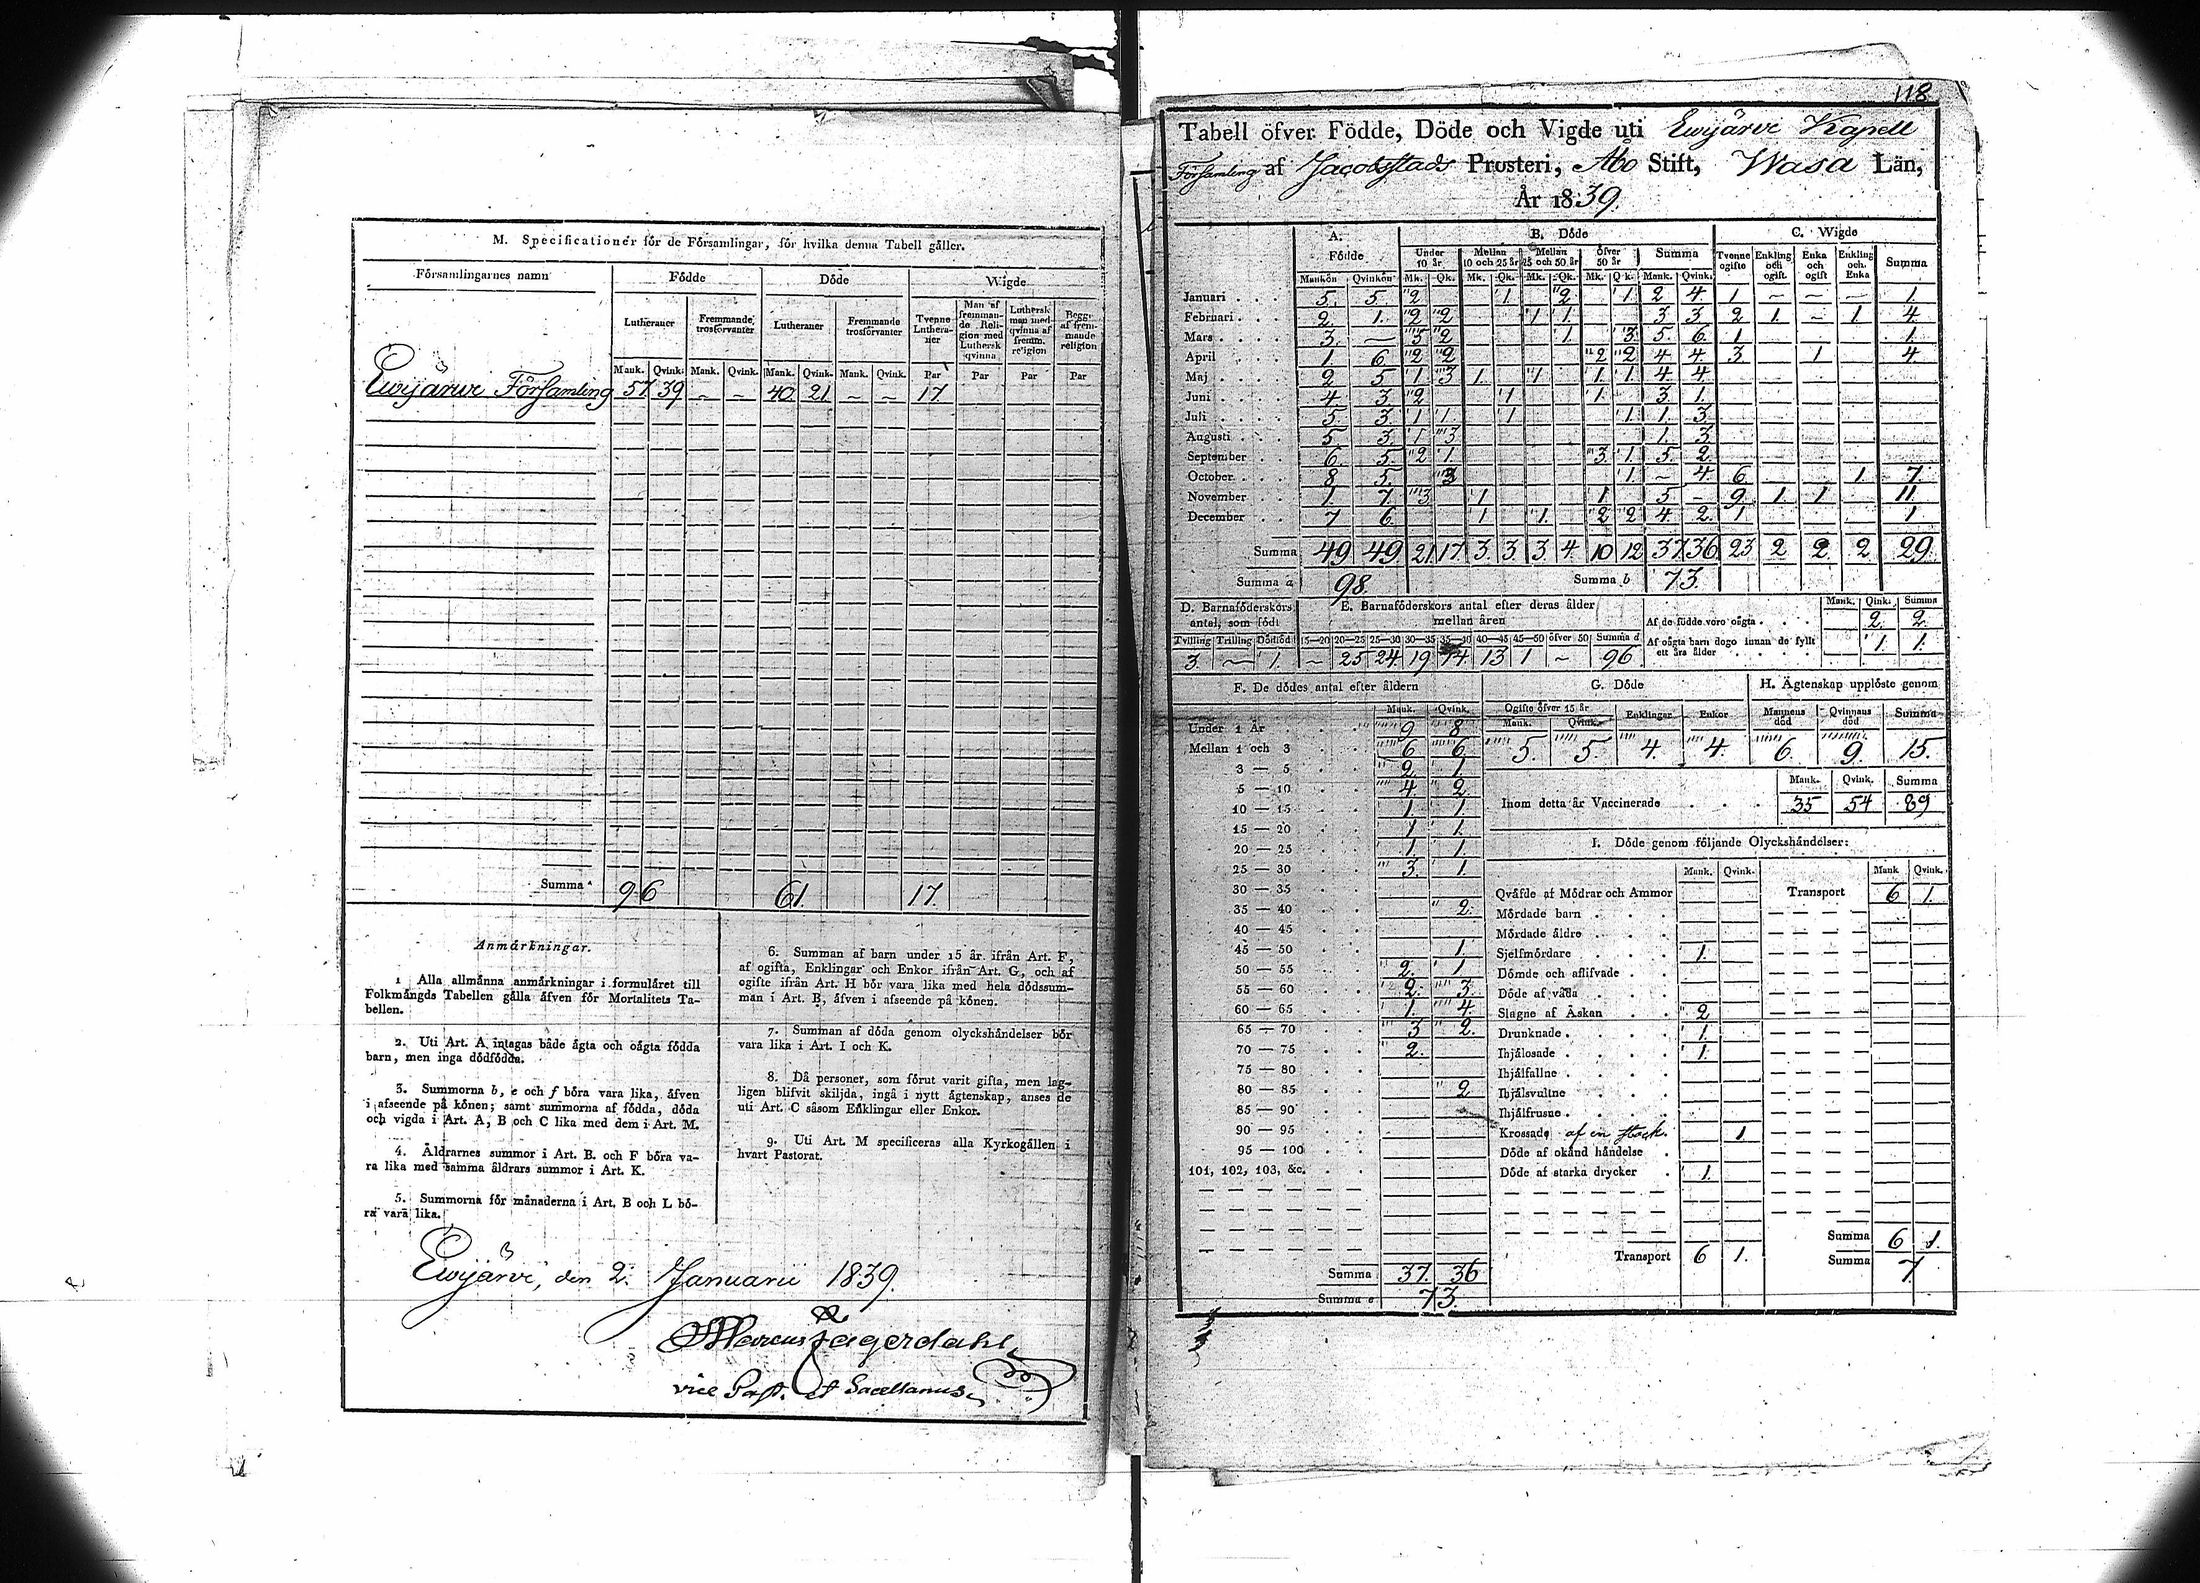 M. Specificationer för de Församlingar, för hvilka denna Tabell gäller.
Församlingarnes namn Födde Döde Wigde
Lutheraner Fremmande trosförvanter Lutheraner Fremmande trosförvanter Tvenne Lutheraner Man af fremmande Religion med Luthersk qvinna Luthersk man med qvinna af fremm. religion Begge af fremmande religion
Mank. Qvink. Mank. Qvink. Mank. Qvink. Mank. Qvink. Par Par Par Par
Ewijärwi Församling 57 39 – – 40 21 – – 17
Summa 96 61 17
Anmärkningar.
1 Alla allmänna anmärkningar i formuläret till
Folkmängds Tabellen gälla äfven för Mortalitets Ta-
bellen.
2. Uti Art. A intagas både ägta och oägta födda
barn, men inga dödfödda.
3. Summorna b, e och f böra vara lika, äfven
i afseende på könen; samt summorna af födda, döda
och vigda i Art. A, B och C lika med dem i Art. M.
4. Åldrarnes summor i Art. B. och F böra va-
ra lika med samma åldrars summor i Art. K.
5. Summorna för månaderna i Art. B och L bö-
ra vara lika.
6. Summan af barn under 15 år. ifrån Art. F,
af ogifta, Enklingar och Enkor ifrån Art. G, och af
ogifte ifrån Art. H bör vara lika med hela dödssum-
man i Art. B, äfven i afseende på könen.
7. Summan af döda genom olyckshändelser bör
vara lika i Art. I och K.
8. Då personer, som förut varit gifta, men lag-
ligen blifvit skiljda, ingå i nytt ägtenskap, anses de
uti Art. C såsom Enklingar eller Enkor.
9. Uti Art. M specificeras alla Kyrkogällen i
hvart Pastorat.
Ewijärvi, den 2. Januarii 1839.
Marcus Jagerdahl
vice Past. et Sacellanus
118
Tabell öfver Födde, Döde och Vigde uti Ewijärvi Kapell
Församling af Jacobstads Prosteri, Åbo Stift, Wasa Län,
År 1839.
A. Födde B. Döde C. Wigde
Under 10 år Mellan 10 och 25 år Mellan 25 och 50 år Öfver 50 år Summa Tvenne ogifte Enkling och ogift. Enka och ogift Enkling och Enka Summa
Mankön Qvinkön Mk. Qk. Mk. Qk. Mk. Qk. Mk. Qk. Mank. Qvink.
Januari 5. 5. 2 1 2 1 2 4. 1 – – – 1.
Februari 2. 1. 2 2 1 1. 3 3 2 1. – 1. 4.
Mars 3. – 5 2 1. 3 5. 6. 1 1.
April 1 6 2 2 2 2 4 4. 3 1 4
Maj 2 5. 1 3 1. 1 1. 1. 4. 4.
Juni 4. 3 2 1 1. 3. 1.
Juli 5. 3. 1 1. 1 1 1. 3
Augusti 5. 3. 1 3 1. 3.
September 6. 5. 2 1. 3. 1. 5. 2
October 8 5. 3 1. – 4. 6 1. 7.
November 1 7. 3. 1 1 5 – 9. 1. 1. 11.
December 7 6. 1 1. 2 2 4. 2. 1 1
Summa 49 49 21 17. 3. 3 3 4. 10 12 37. 36 23 2 2. 2 29.
Summa a 98. Summa b 73.
D. Barnaföderskors antal, som födt E. Barnaföderskors antal efter deras ålder mellan åren
Tvilling Trilling Dödfödt 15–20 20–25 25–30 30–35 35–40 40–45 45–50 öfver 50 Summa d
3 – 1. – 25 24 19 14 13 1 – 96
Mank. Qink. Summa
Af de födde voro oägta 2. 2.
Af oägta barn dogo innan de fyllt ett års ålder 1. 1.
F. De dödes antal efter åldern
Mank. Qvink.
Under 1 År 9 8
Mellan 1 och 3 6 6
3 — 5 2 1.
5 — 10 4. 2.
10 — 15 1. 1.
15 — 20 1 1.
20 — 25 1. 1.
25 — 30 3. 1.
30 — 35
35 — 40 2.
40 — 45
45 — 50 1.
50 — 55 2. 1
55 — 60 2. 3.
60 — 65 1. 4.
65 — 70 3 2.
70 — 75 2.
75 — 80
80 — 85 2
85 — 90
90 — 95
95 — 100
101, 102, 103, &c.
Summa 37. 36
Summa e 73.
G. Döde
Ogifte öfver 15 år Enklingar Enkor
Mank. Qvink.
5. 5. 4. 4.
H. Ägtenskap upplöste genom
Mannens död Qvinnans död Summa
6. 9. 15.
Mank. Qvink. Summa
Inom detta år Vaccinerade 35 54 89
I. Döde genom följande Olyckshändelser:
Mank. Qvink. Mank Qvink.
Qväfde af Mödrar och Ammor Transport 6 1.
Mördade barn
Mördade äldre
Sjelfmördare 1.
Dömde och aflifvade
Döde af våda
Slagne af Åskan 2
Drunknade 1.
Ihjälosade 1.
Ihjälfallne
Ihjälsvultne
Ihjälfrusne
Krossade af en stock. 1.
Döde af okänd händelse
Döde af starka drycker 1.
Summa 6 1.
Transport 6 1. Summa 7